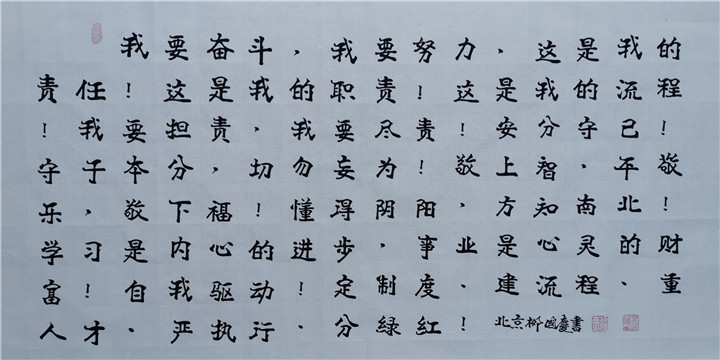 我要奋斗，我要努力，这是我的
责任！这是我的职责！这是我的流程
！我要担责，我要尽责！安分守己！
守子本分，切勿妄为！敬上智、平敬
乐，敬下福！懂得阴阳，方知南北！
学习是内心的进步，事业是心灵的财
富！自我驱动！定制度、建流程、重
人才、严执行、分绿红！
北京柳国慶書